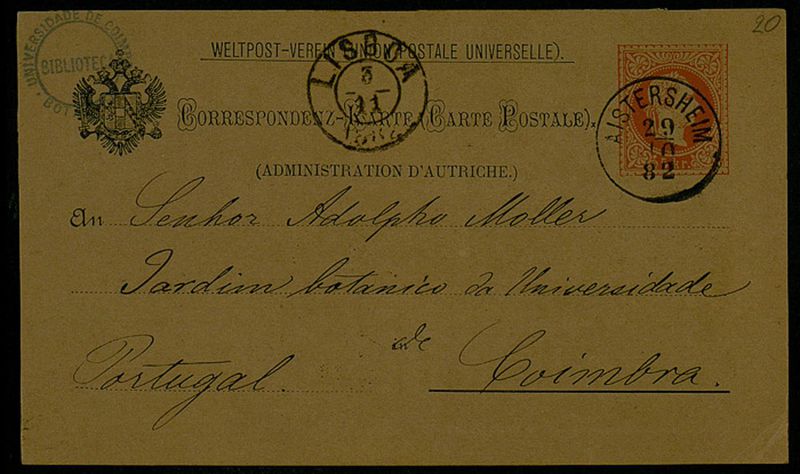 20
UNIVERSIDADE DE COIMBRA
BIBLIOTECA
BOT
WELTPOST-VEREIN (UNION POSTALE UNIVERSELLE).
LISBOA
3
11
CORRESPONDENZ-KARTE (CARTE POSTALE).
AISTERSHEIM
29
10
82
(ADMINISTRATION D'AUTRICHE.)
An Senhor Adolpho Moller
Jardim botanico da Universidade
de
Portugal. Coimbra.